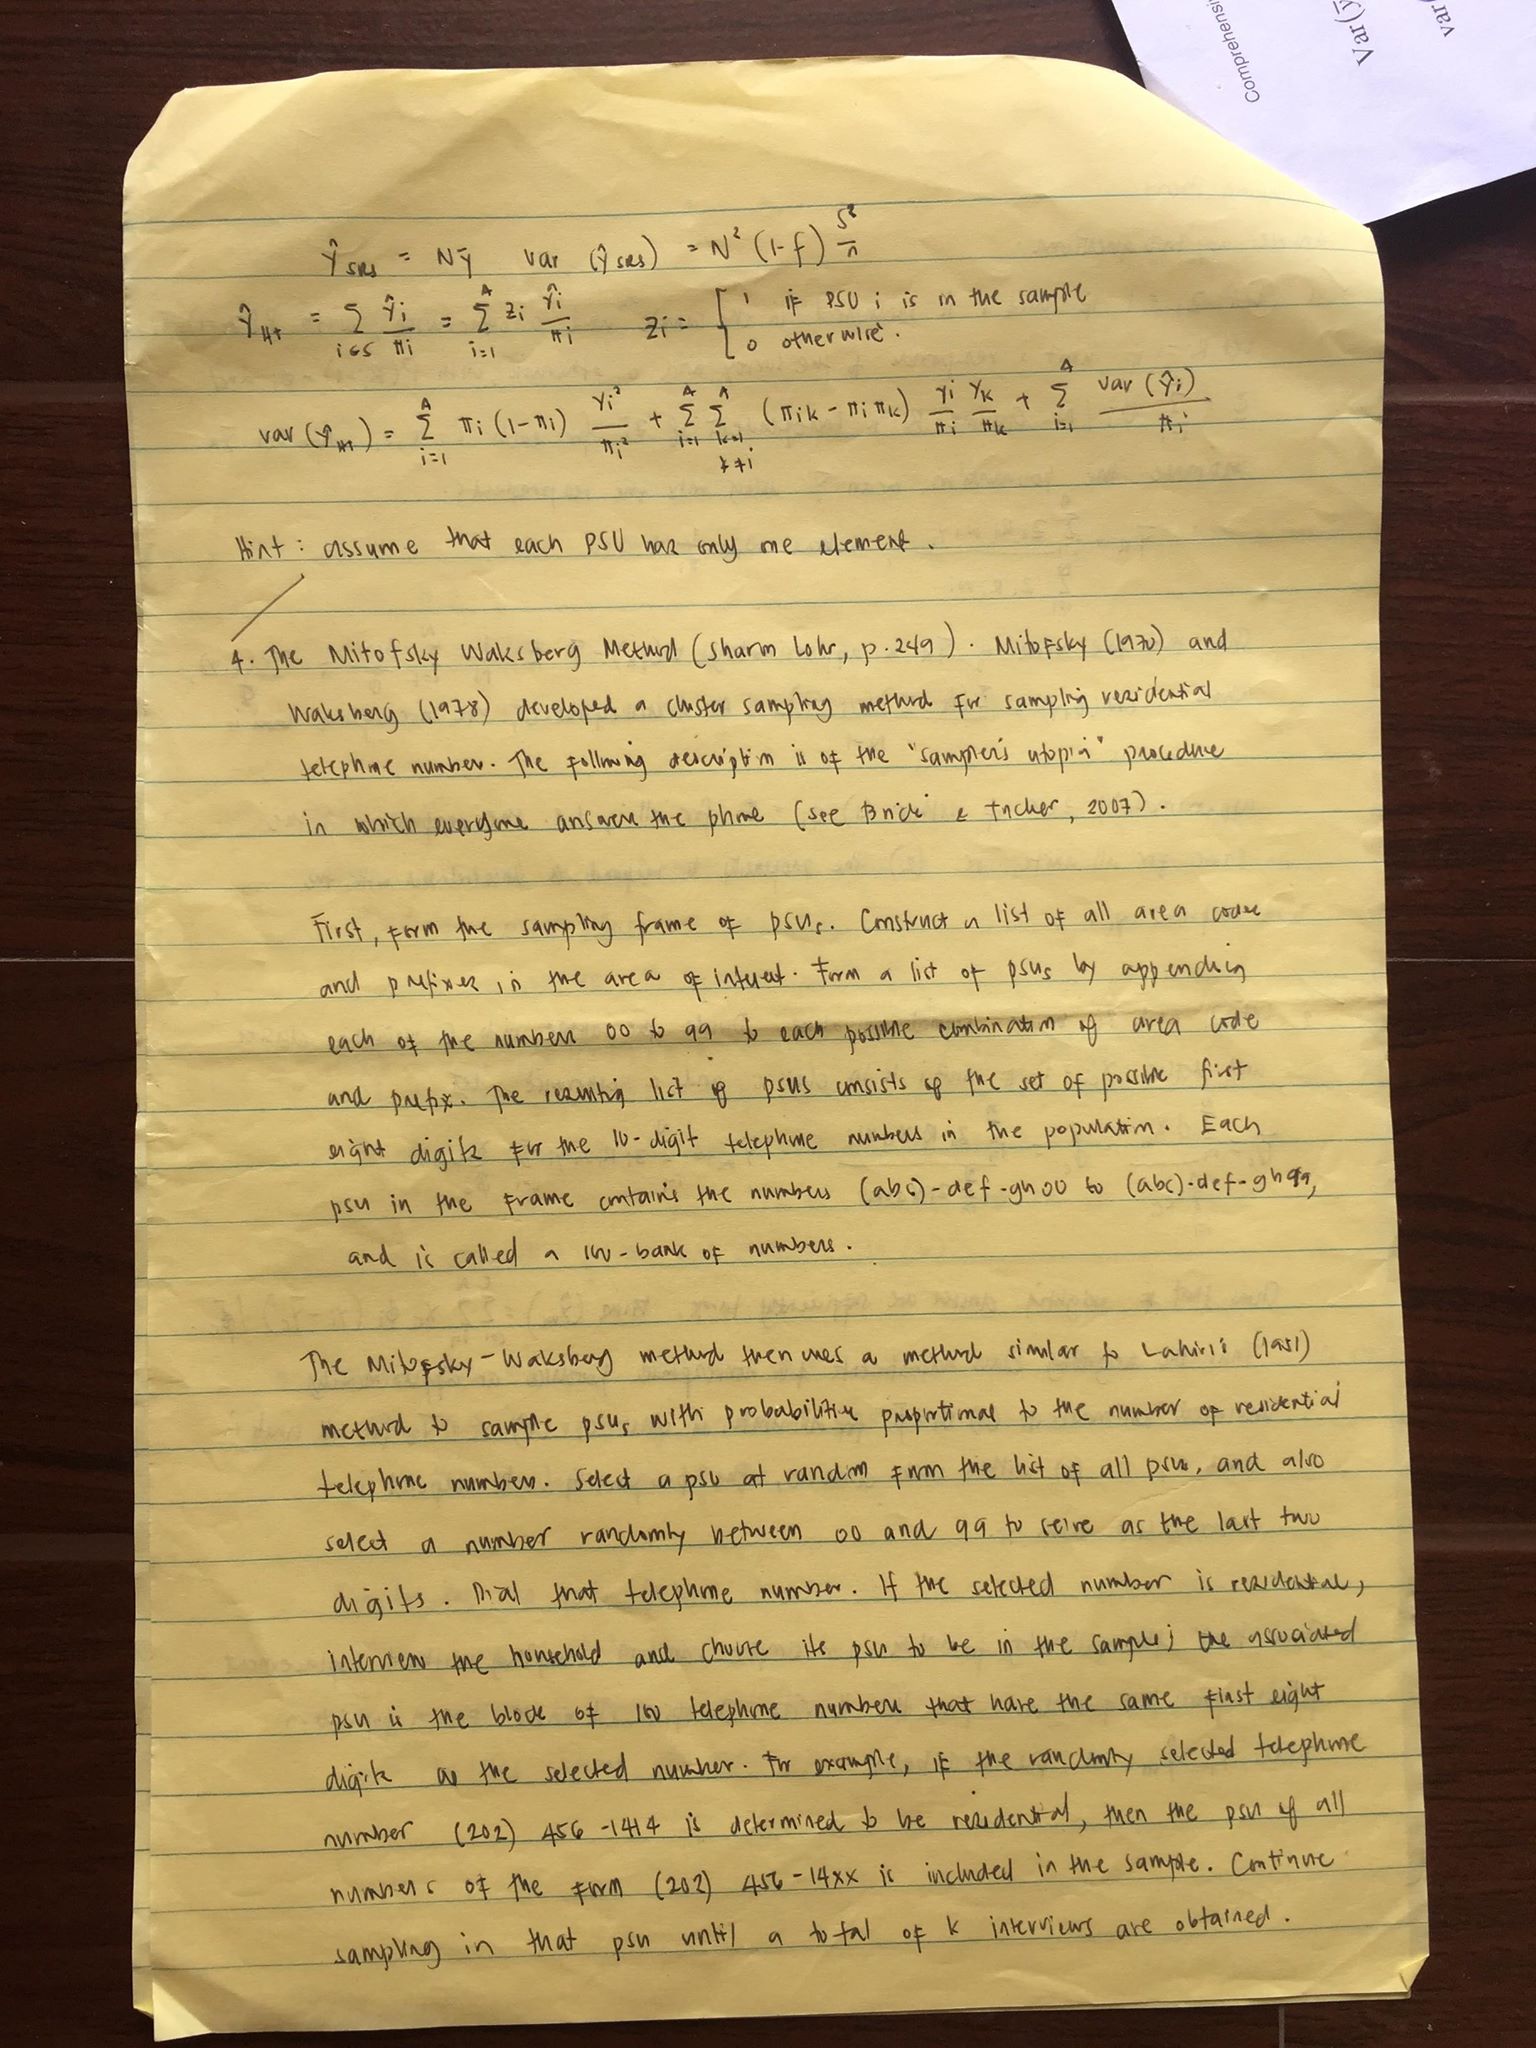 Comprehensi
Var(ȳ
var(
Ŷ_SRS = Nȳ var (Ŷ_SRS) = N² (1-f) S²/n
Ŷ_HT = Σ_{i∈S} Ŷi/πi = Σ_{i=1}^{A} Zi Ŷi/πi Zi = [ 1 if PSU i is in the sample
0 otherwise.
var (Ŷ_HT) = Σ_{i=1}^{A} πi (1-πi) Yi²/πi² + Σ_{i=1}^{A} Σ_{k=1, k≠i}^{A} (πik - πiπk) Yi/πi Yk/πk + Σ_{i=1}^{A} var (Ŷi)/πi
Hint: assume that each PSU has only one element.
4. The Mitofsky Waksberg Method (Sharon Lohr, p.249). Mitofsky (1970) and
Waksberg (1978) developed a cluster sampling method for sampling residential
telephone number. The following description is of the "sampler's utopia" procedure
in which everyone answers the phone (see Brick & Tucker, 2007).
First, form the sampling frame of psus. Construct a list of all area codes
and prefixes in the area of interest. Form a list of psus by appending
each of the numbers 00 to 99 to each possible combination of area code
and prefix. The resulting list of psus consists of the set of possible first
eight digits for the 10-digit telephone numbers in the population. Each
psu in the frame contains the numbers (abc)-def-gh00 to (abc)-def-gh99,
and is called a 100-bank of numbers.
The Mitofsky-Waksberg method then uses a method similar to Lahiri's (1951)
method to sample psus with probabilities proportional to the number of residential
telephone numbers. Select a psu at random from the list of all psus, and also
select a number randomly between 00 and 99 to serve as the last two
digits. Dial that telephone number. If the selected number is residential,
interview the household and choose its psu to be in the sample; the associated
psu is the block of 100 telephone numbers that have the same first eight
digits as the selected number. For example, if the randomly selected telephone
number (202) 456-1414 is determined to be residential, then the psu of all
numbers of the form (202) 456-14xx is included in the sample. Continue
sampling in that psu until a total of k interviews are obtained.